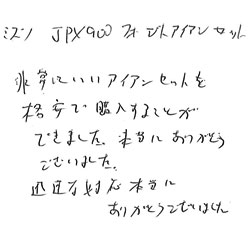 ミズノ JPX900 フォージドアイアンセット
非常にいいアイアンセットを
格安で購入することが
できました。本当にありがとう
ございました。
迅速な対応本当に
ありがとうございました